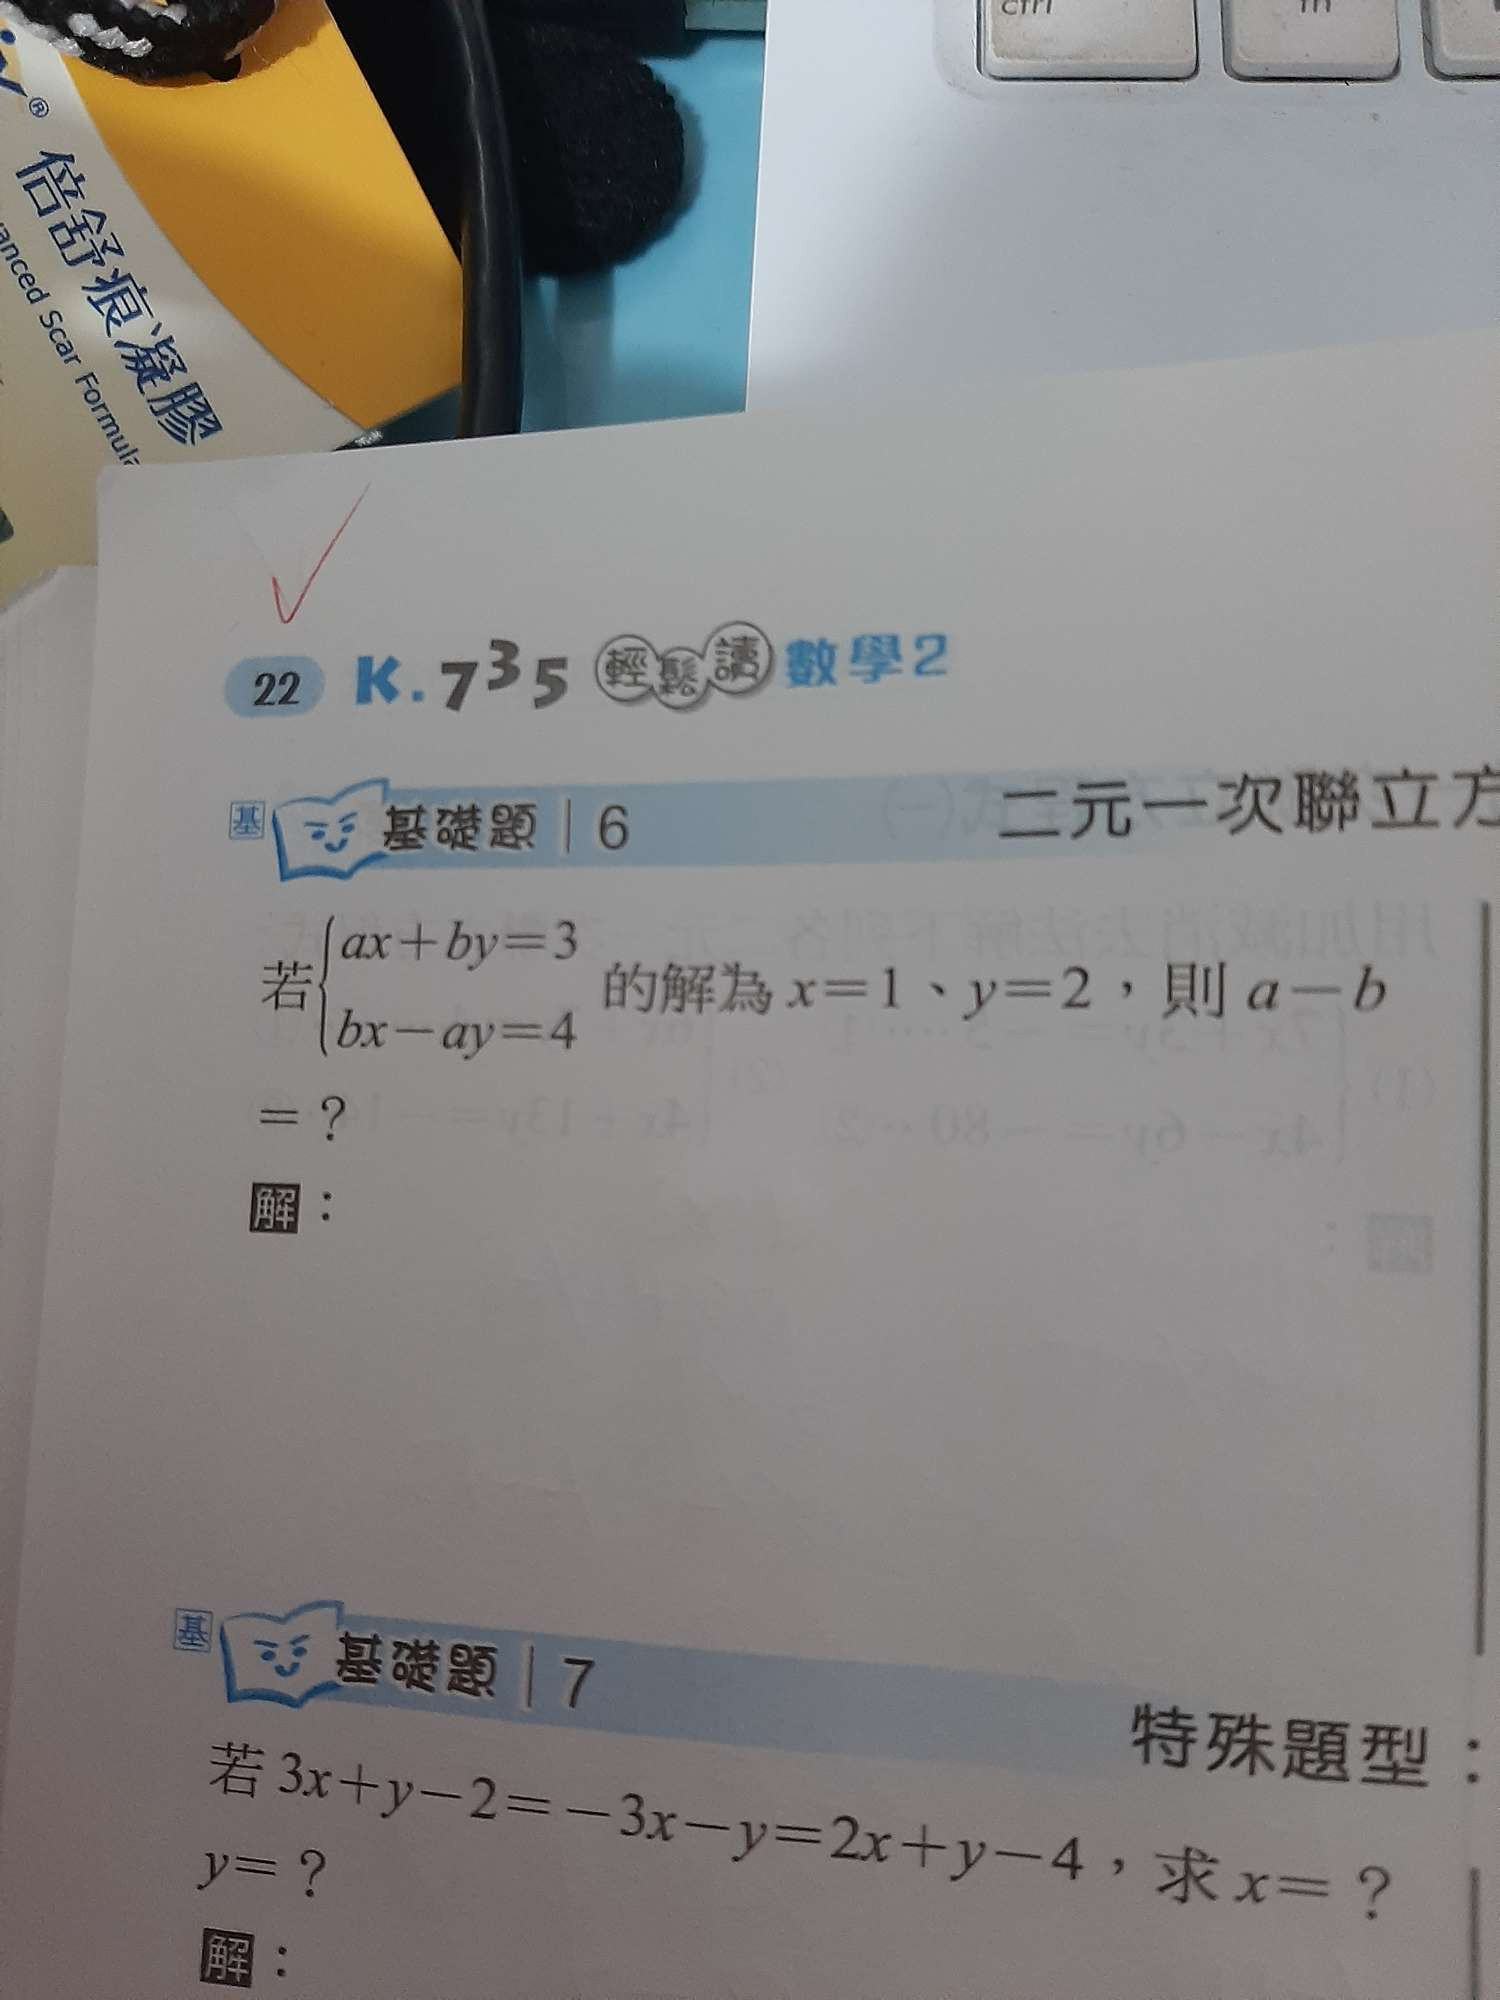 ctrl
fn
®
倍舒痕凝膠
anced Scar Formula
22 K.735 輕鬆讀 數學2
基 基礎題 | 6 二元一次聯立方
若{ax+by=3
bx-ay=4
的解為 x=1、y=2,則 a-b
=?
解:
基 基礎題 | 7 特殊題型:
若 3x+y-2=-3x-y=2x+y-4,求 x=?
y=?
解: